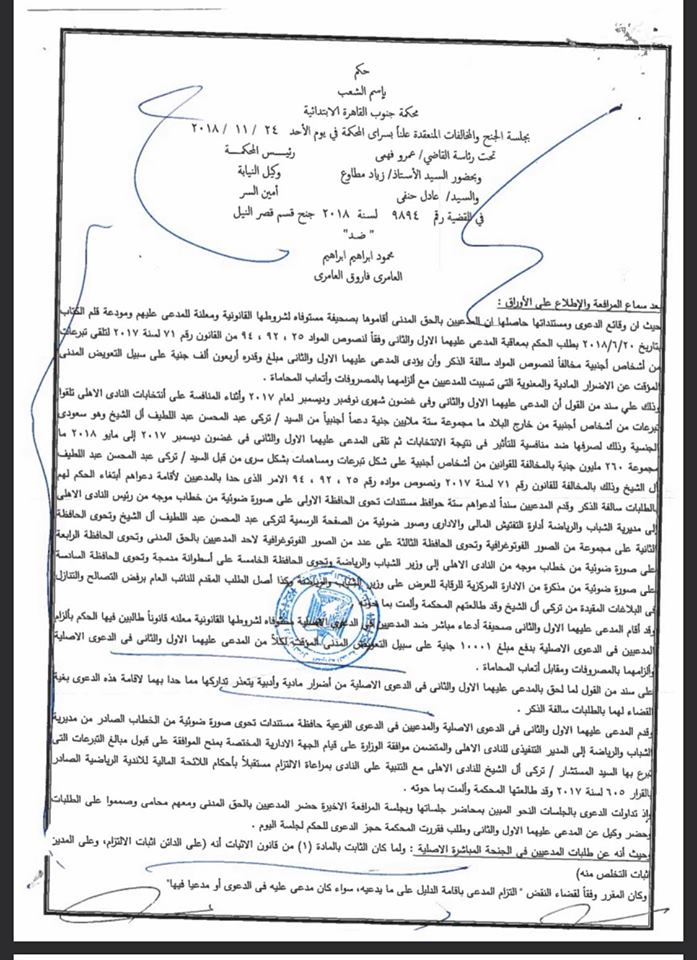 حكم
بإسم الشعب
محكمة جنوب القاهرة الابتدائية
بجلسة الجنح والمخالفات المنعقدة علناً بسراى المحكمة في يوم الأحد ٢٤ / ١١ / ٢٠١٨
تحت رئاسة القاضي/ عمرو فهمى رئيس المحكمة
وبحضور السيد الأستاذ/ زياد مطاوع وكيل النيابة
والسيد/ عادل حنفى أمين السر
في القضية رقم ٩٨٩٤ لسنة ٢٠١٨ جنح قسم قصر النيل
" ضد"
محمود ابراهيم ابراهيم
العامرى فاروق العامرى
بعد سماع المرافعة والإطلاع على الأوراق :
حيث ان وقائع الدعوى ومستنداتها حاصلها ان المدعيين بالحق المدنى أقاموها بصحيفة مستوفاه لشروطها القانونية ومعلنة للمدعى عليهم ومودعة قلم الكتاب
بتاريخ ٢٠١٨/٦/٢٠ بطلب الحكم بمعاقبة المدعى عليهما الاول والثانى وفقاً لنصوص المواد ٢٥ ، ٩٢ ، ٩٤ من القانون رقم ٧١ لسنة ٢٠١٧ لتلقى تبرعات
من أشخاص أجنبية مخالفاً لنصوص المواد سالفة الذكر وأن يؤدى المدعى عليهما الاول والثانى مبلغ وقدره أربعون ألف جنية على سبيل التعويض المدنى
المؤقت عن الاضرار المادية والمعنوية التى تسببت للمدعيين مع ألزامهما بالمصروفات وأتعاب المحاماة .
وذلك علي سند من القول أن المدعى عليهما الاول والثانى وفى غضون شهرى نوفمبر وديسمبر لعام ٢٠١٧ وأثناء المنافسة على أنتخابات النادى الاهلى تلقوا
تبرعات من أشخاص أجنبية من خارج البلاد ما مجموعة ستة ملايين جنية دعماً أجنبياً من السيد / تركى عبد المحسن عبد اللطيف أل الشيخ وهو سعودى
الجنسية وذلك لصرفها ضد منافسية للتأثير فى نتيجة الانتخابات ثم تلقى المدعى عليهما الاول والثانى فى غضون ديسمبر ٢٠١٧ إلى مايو ٢٠١٨ ما
مجموعة ٢٦٠ مليون جنية بالمخالفة للقوانين من أشخاص أجنبية على شكل تبرعات ومساهمات بشكل سرى من قبل السيد / تركى عبد المحسن عبد اللطيف
أل الشيخ وذلك بالمخالفة للقانون رقم ٧١ لسنة ٢٠١٧ ونصوص مواده رقم ٢٥ ، ٩٢ ، ٩٤ الامر الذى حدا بالمدعيين لأقامة دعواهم أبتغاء الحكم لهم
بالطلبات سالفة الذكر وقدم المدعيين سنداً لدعواهم ستة حوافظ مستندات تحوى الحافظة الاولى على صورة ضوئية من خطاب موجه من رئيس النادى الاهلى
إلى مديرية الشباب والرياضة أدارة التفتيش المالى والادارى وصور ضوئية من الصفحة الرسمية لتركى عبد المحسن عبد اللطيف أل الشيخ وتحوى الحافظة
الثانية على مجموعة من الصور الفوتوغرافية وتحوى الحافظة الثالثة على عدد من الصور الفوتوغرافية لاحد المدعيين بالحق المدنى وتحوى الحافظة الرابعة
على صورة ضوئية من خطاب موجه من النادى الاهلى إلى وزير الشباب والرياضة وتحوى الحافظة الخامسة على أسطوانة مدمجة وتحوى الحافظة السادسة
على صورة ضوئية من مذكرة من الادارة المركزية للرقابة للعرض على وزير الشباب والرياضة وكذا أصل الطلب المقدم للنائب العام برفض التصالح والتنازل
فى البلاغات المقيدة من تركى أل الشيخ وقد طالعتهم المحكمة وألمت بما حوته .
وقد أقام المدعى عليهما الاول والثانى صحيفة أدعاء مباشر ضد المدعيين فى الدعوى الاصلية مستوفاه لشروطها القانونية معلنه قانوناً طالبين فيها الحكم بألزام
المدعيين فى الدعوى الاصلية بدفع مبلغ ١٠٠٠١ جنية على سبيل التعويض المدنى المؤقت لكلاً من المدعى عليهما الاول والثانى فى الدعوى الاصلية
وألزامهما بالمصروفات ومقابل أتعاب المحاماة .
على سند من القول لما لحق بالمدعى عليهما الاول والثانى فى الدعوى الاصلية من أضرار مادية وأدبية يتعذر تداركها مما حدا بهما لاقامة هذه الدعوى بغية
القضاء لهما بالطلبات سالفة الذكر .
وقدم المدعى عليهما الاول والثانى فى الدعوى الاصلية والمدعيين فى الدعوى الفرعية حافظة مستندات تحوى صورة ضوئية من الخطاب الصادر من مديرية
الشباب والرياضة إلى المدير التنفيذى للنادى الاهلى والمتضمن موافقة الوزارة على قيام الجهة الادارية المختصة بمنح الموافقة على قبول مبالغ التبرعات التى
تبرع بها السيد المستشار / تركى أل الشيخ للنادى الاهلى مع التنبية على النادى بمراعاة الالتزام مستقبلاً بأحكام اللائحة المالية للاندية الرياضية الصادر
بالقرار ٦٠٥ لسنة ٢٠١٧ وقد طالعتها المحكمة وألمت بما حوته .
وإذ تداولت الدعوى بالجلسات النحو المبين بمحاضر جلساتها وبجلسة المرافعة الاخيرة حضر المدعيين بالحق المدنى ومعهم محامى وصمموا على الطلبات
وحضر وكيل عن المدعى عليهما الاول والثانى وطلب فقررت المحكمة حجز الدعوى للحكم لجلسة اليوم .
وحيث أنه عن طلبات المدعيين في الجنحة المباشرة الاصلية : ولما كان الثابت بالمادة (١) من قانون الاثبات أنه (على الدائن اثبات الالتزام، وعلى المدين
اثبات التخلص منه)
وكان المقرر وفقاً لقضاء النقض " التزام المدعى باقامة الدليل على ما يدعيه، سواء كان مدعى عليه فى الدعوى أو مدعيا فيها"